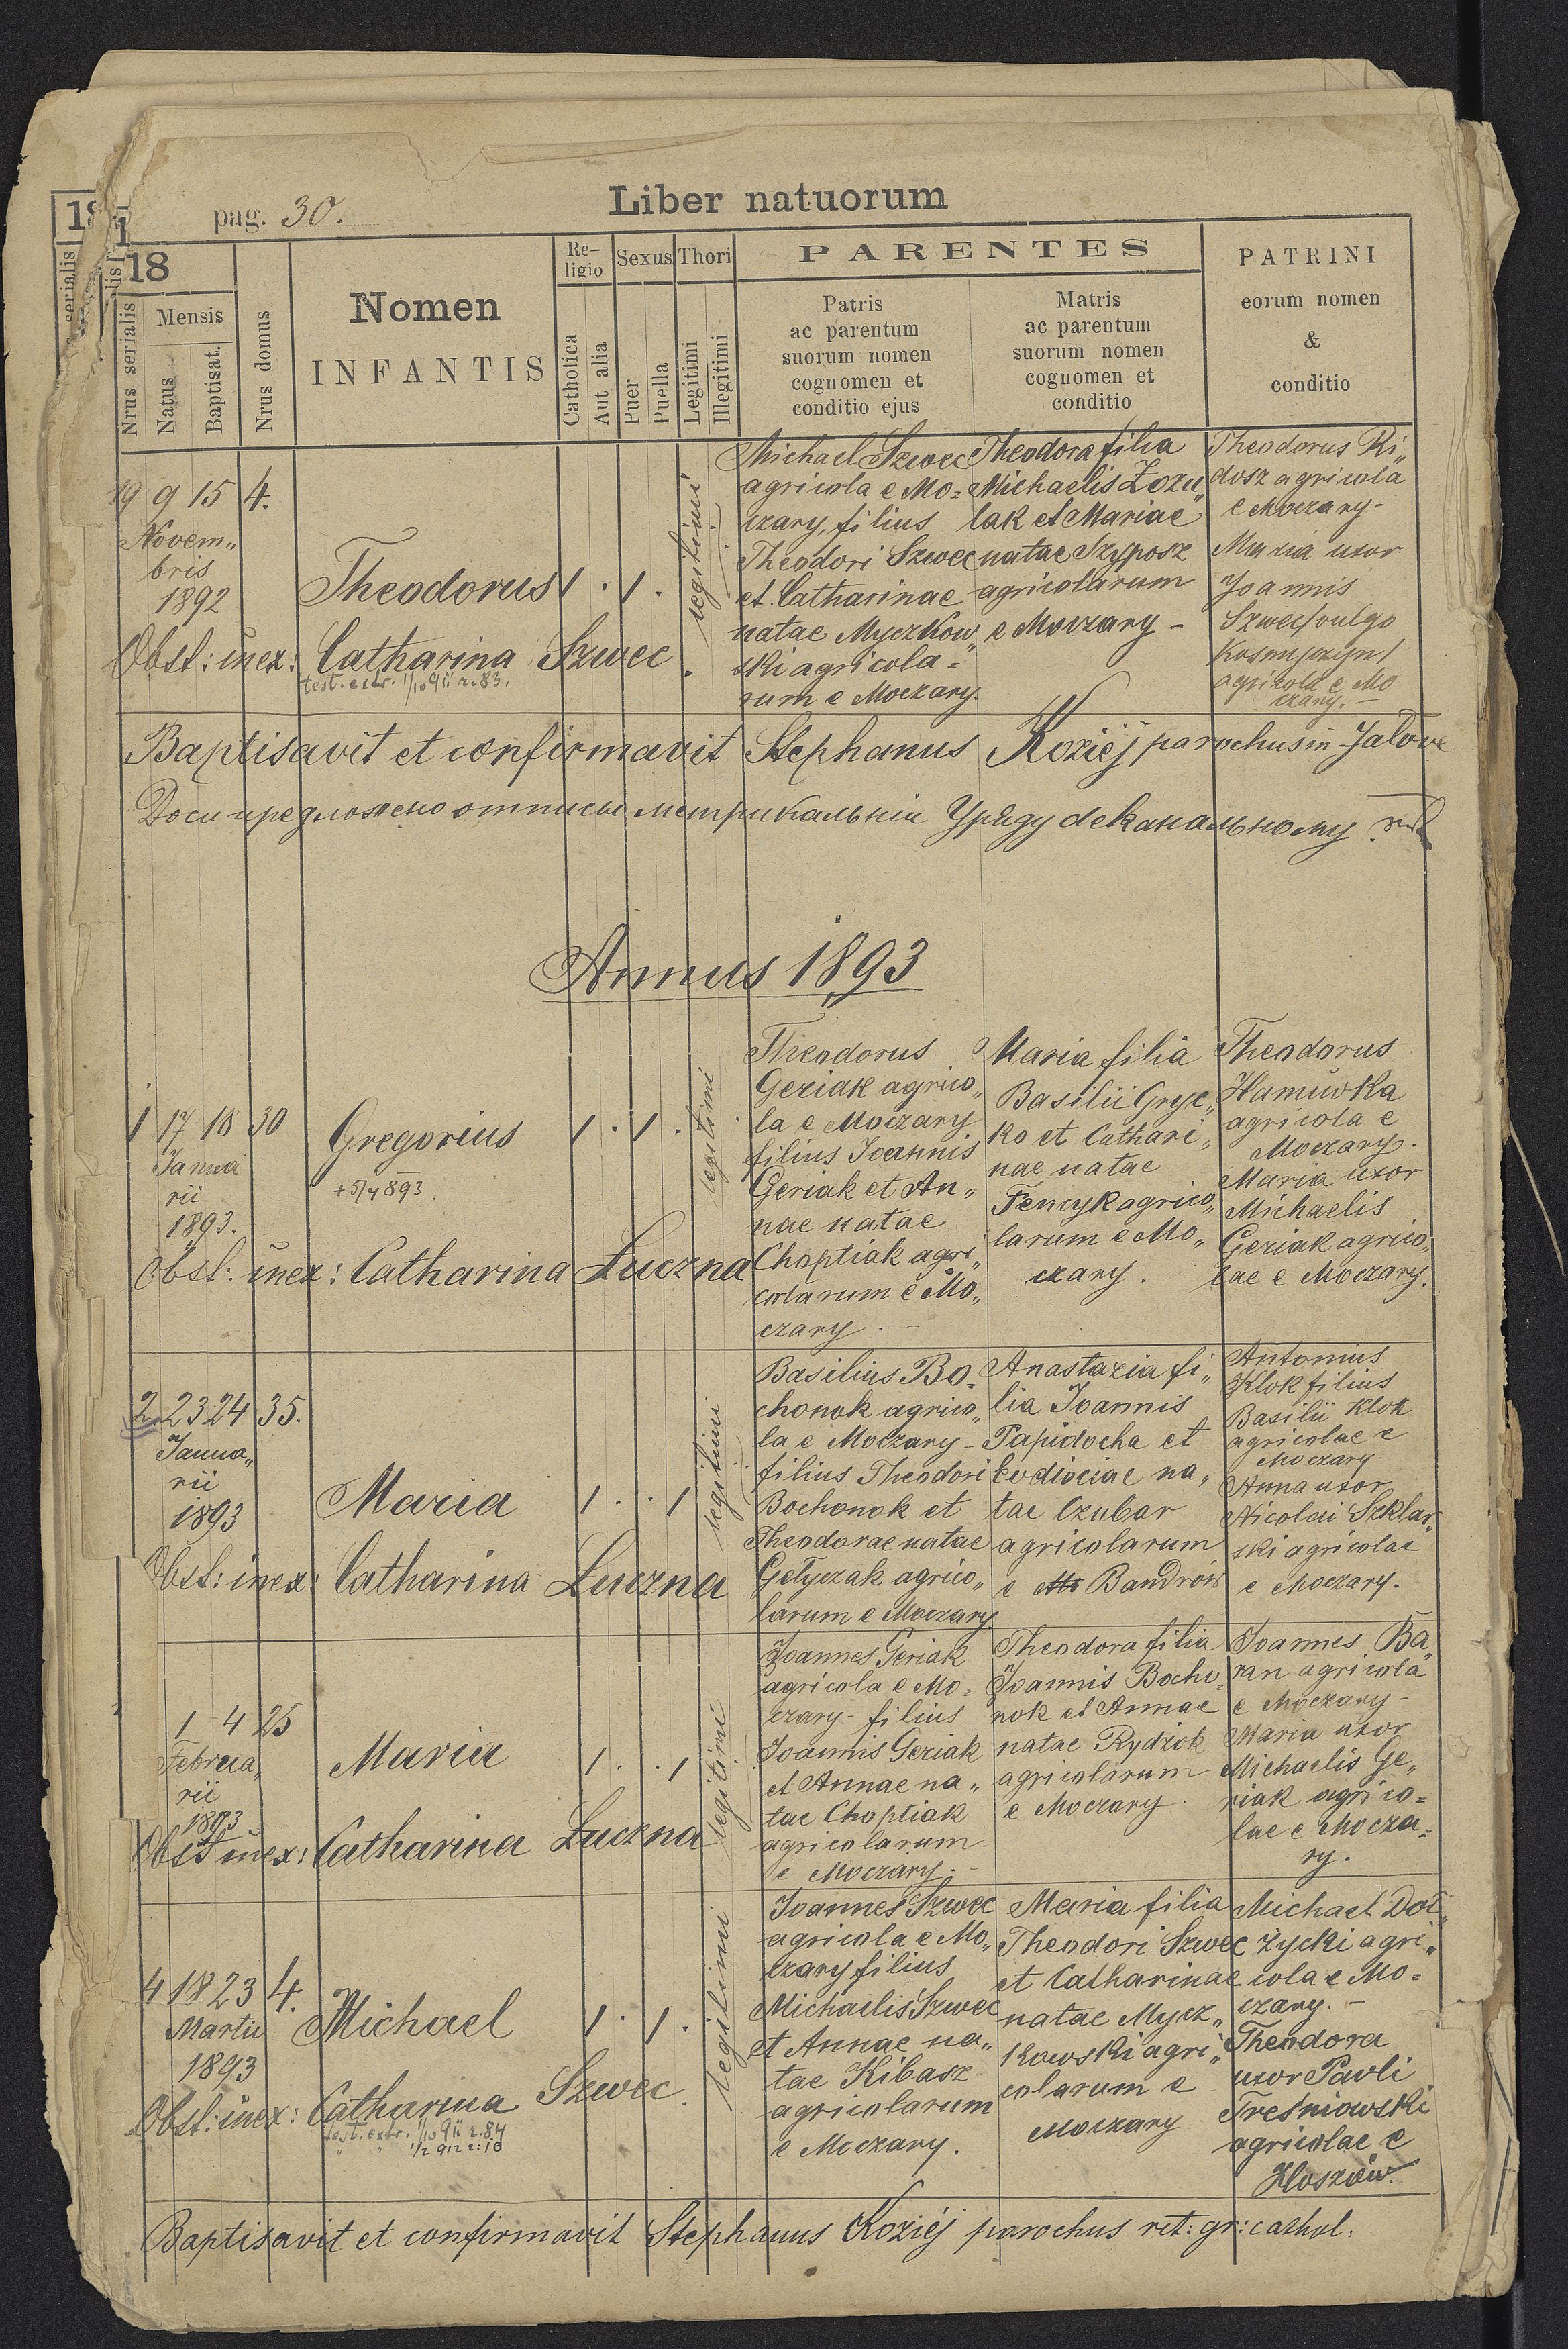 pag. 30.
Liber natuorum
18
Nrus serialis
Mensis
Natus
Baptisat.
Nrus domus
Nomen
INFANTIS
Religio
Catholica
Aut alia
Sexus
Puer
Puella
Thori
Legitimi
Illegitimi
PARENTES
Patris
ac parentum
suorum nomen
cognomen et
conditio ejus
Matris
ac parentum
suorum nomen
cognomen et
conditio
PATRINI
eorum nomen
&
conditio
19 9 15 4.
Novem„
bris
1892
Theodorus 1 . 1 .
legitimi
Obst: inex: Catharina Szwec.
test. extr. 1/10 911 z. 83.
Michael Szwec
agricola e Mo=
czary, filius
Theodori Szwec
et Catharinae
natae Myczkow„
ski agricola=
rum e Moczary.
Theodora filia
Michaelis Zozu„
lak et Mariae
natae Szyposz
agricolarum
e Moczary -
Theodorus Ri„
dosz agricola
e Moczary-
Maria uxor
Joannis
Szwec/vulgo
agricola e Mo
czary. -
Baptisavit et confirmavit Stephanus Koziéj parochus in Jalowe
Доси предложено отписы метрикальніи Уряду деканальному
Annus 1893
1 17 18 30
Janua
rii
1893.
Gregorius 1 . 1 .
+ 5/4 893.
legitimi
Obst: inex: Catharina Łuczna
Theodorus
Geziak agrico„
la e Moczary
filius Joannis
Geriak et An„
nae natae
Choptiak agri„
colarum e Mo„
czary . -
Maria filia
Basilii Gryc„
ko et Cathari„
nae natae
Fencyk agrico„
larum e Mo„
czary.
Theodorus
Hamuwka
agricola e
Moczary.
Maria uxor
Michaelis
Geziak agrico„
lae e Moczary.
2 23 24 35.
Janua„
rii
1893
Maria 1 . . 1
legitimi
Obst: inex: Catharina Łuczna
Basilius Bo=
chonok agrico„
la e Moczary -
filius Theodori
Bochonok et
Theodorae natae
Gełyczak agrico„
larum e Moczary
Anastazia fi„
lia Joannis
Papidocha et
Eudiociae na„
tae Czubar
agricolarum
e Mo Bandrów
Antonius
Klok filius
Basilii Klok
agricolae e
Moczary
Anna uxor
Nicolai Szklar„
ski agricolae
e Moczary.
1 4 25
Februa„
rii
1893
Maria 1 . . 1
legitimi
Obst inex: Catharina Łuczna
Joannes Geriak
agricola e Mo=
czary - filius
Joannis Geziak
et Annae na„
tae Choptiak
agricolarum
e Moczary. -
Theodora filia
Joannis Bocho=
nok et Annae
natae Rydzok
agricolarum
e Moczary.
Joannes Ba„
ran agricola
e Moczary-
Maria uxor
Michaelis Ge„
riak agrico=
lae e Mocza=
ry.
4 18 23 4.
Martii
1893
Michael 1 . 1 .
legitimi
Obst: inex: Catharina Szwec.
test. extr. 1/10 911 z. 84
" " 1/2 912 z: 16
Joannes Szwec
agricola e Mo„
czary filius
Michaelis Szwec
et Annae na„
tae Kibasz
agricolarum
e Moczary.
Maria filia
Theodori Szwec
et Catharinae
natae Mycz„
kowski agri„
colarum e
Moczary
Michael Doł„
życki agri„
cola e Mo=
czary. -
Theodora
uxor Pavli
Treśniowski
agricolae e
Hoszów.
Baptisavit et confirmavit Stephanus Koziéj parochus rit: gr: cathol.